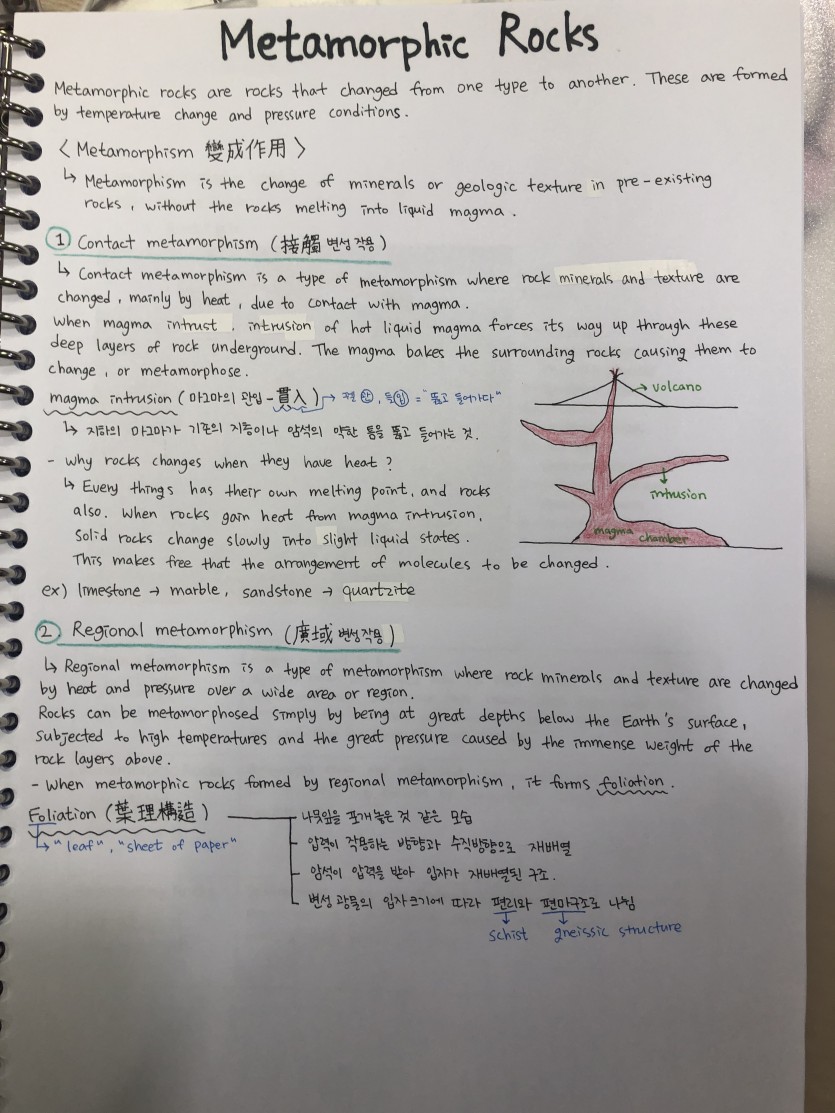 Metamorphic Rocks
Metamorphic rocks are rocks that changed from one type to another. These are formed
by temperature change and pressure conditions.
〈Metamorphism 變成作用〉
↳ Metamorphism is the change of minerals or geologic texture in pre-existing
rocks, without the rocks melting into liquid magma.
① Contact metamorphism (接觸 변성작용)
↳ Contact metamorphism is a type of metamorphism where rock minerals and texture are
changed, mainly by heat, due to contact with magma.
When magma intrust, intrusion of hot liquid magma forces its way up through these
deep layers of rock underground. The magma bakes the surrounding rocks causing them to
change, or metamorphose.
magma intrusion (마그마의 관입-貫入) → 꿰뚫 관, 들 입 = "뚫고 들어가다"
↳ 지하의 마그마가 기존의 지층이나 암석의 약한 틈을 뚫고 들어가는 것.
- Why rocks changes when they have heat?
↳ Every things has their own melting point, and rocks
also. When rocks gain heat from magma intrusion,
solid rocks change slowly into slight liquid states.
This makes free that the arrangement of molecules to be changed.
ex) limestone → marble, sandstone → quartzite
→ volcano
intrusion
magma chamber
② Regional metamorphism (廣域 변성작용)
↳ Regional metamorphism is a type of metamorphism where rock minerals and texture are changed
by heat and pressure over a wide area or region.
Rocks can be metamorphosed simply by being at great depths below the Earth's surface,
subjected to high temperatures and the great pressure caused by the immense weight of the
rock layers above.
- When metamorphic rocks formed by regional metamorphism, it forms foliation.
Foliation (葉理構造)
↳ "leaf", "sheet of paper"
나뭇잎을 포개놓은 것 같은 모습
압력이 작용하는 방향과 수직방향으로 재배열
암석이 압력을 받아 입자가 재배열된 구조.
변성 광물의 입자 크기에 따라 편리와 편마구조로 나뉨
schist gneissic structure